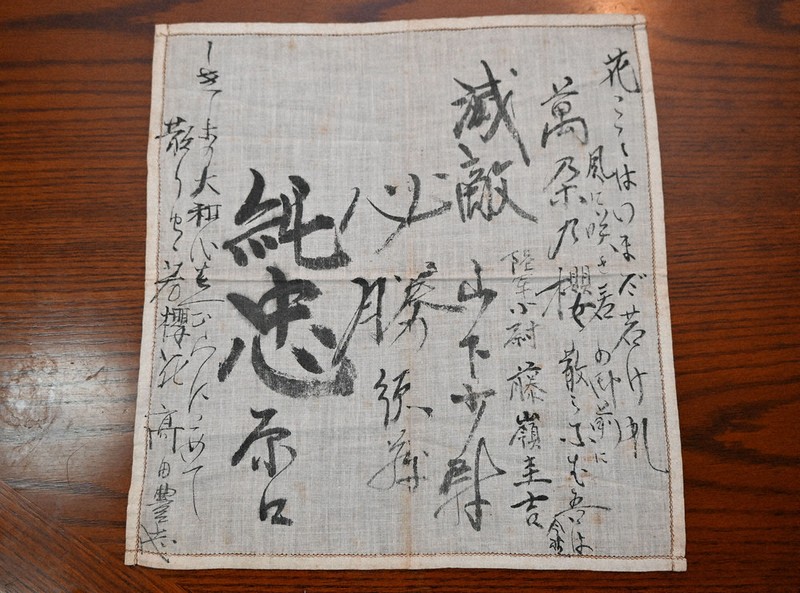 花こゝはいまだ若けれ
風に咲き君の御前に
萬朶乃櫻散らなむ吾は
陸軍少尉 藤嶺圭吉
滅敵 山下少尉
必勝
純忠 原口
しきしま 大和 にこめて
散りゆく若櫻花 高田豊志